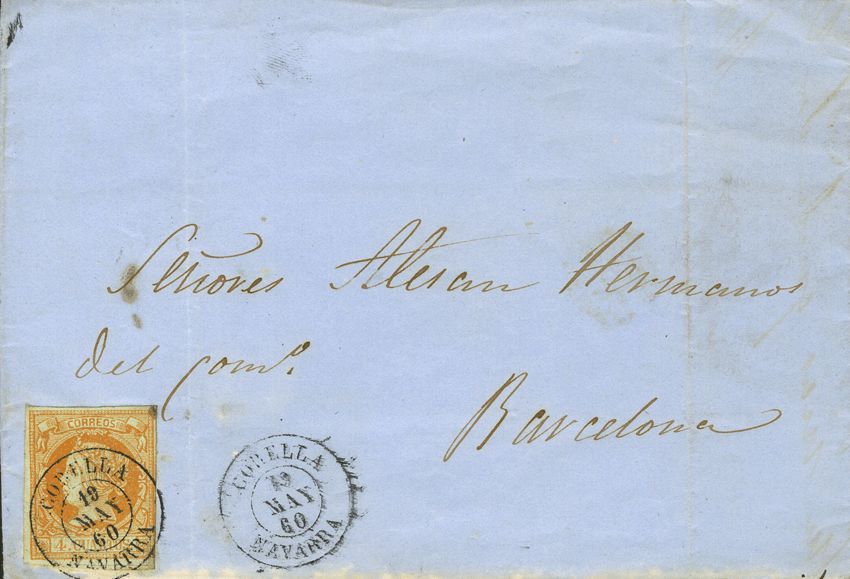 Señores Alesan Hermanos
del com.º
Barcelona
CORREOS
CORELLA
19
MAY
60
NAVARRA
CORELLA
19
MAY
60
NAVARRA